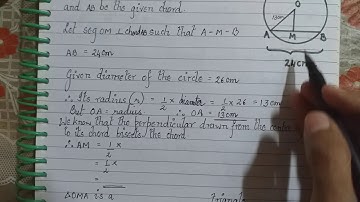 and AB be the given chord.
Let seg OM ⊥ chord AB such that A-M-B
AB = 24cm
Given diameter of the circle = 26cm
∴ Its radius (r) = 1/2 x diameter = 1/2 x 26 = 13cm
But OA = radius ∴ OA = 13cm
We know that the perpendicular drawn from the centre
to its chord bisects the chord
∴ AM = 1/2 x
= 1/2 x
=
△OMA is a
Triangle
O
13cm
A M B
24cm